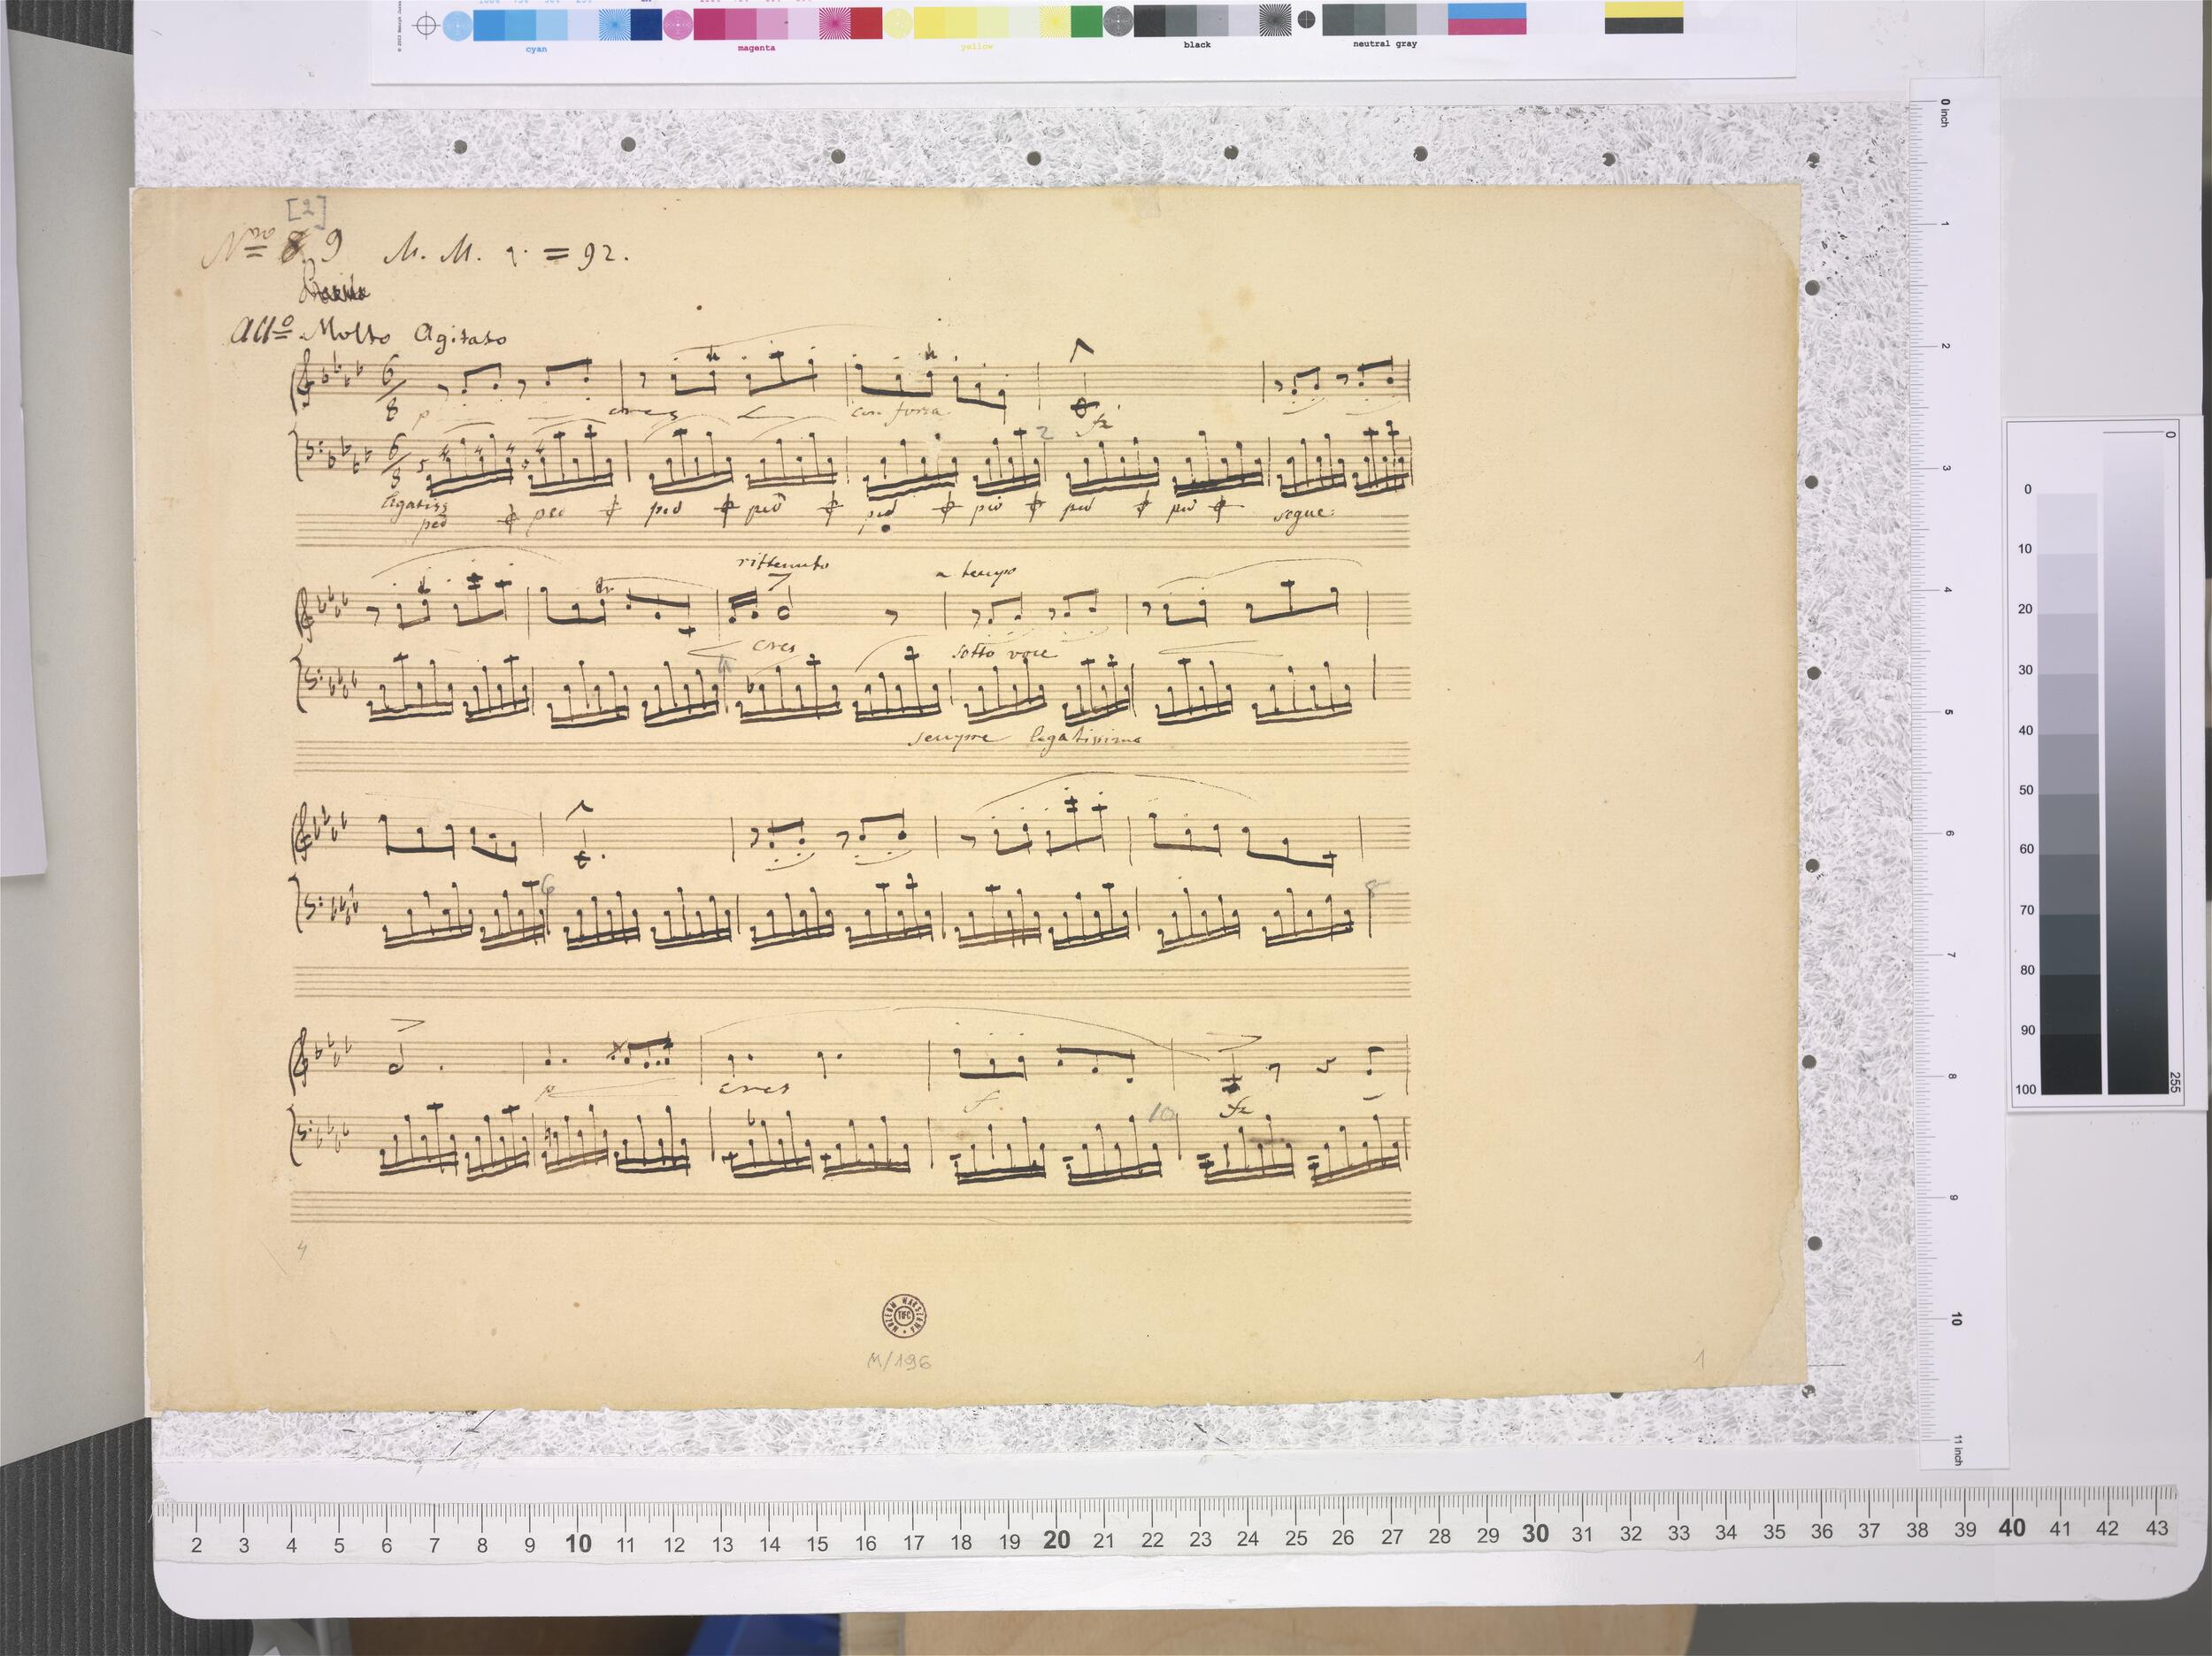 [2]
Nro 8 9 M. M. = 92.
All° Molto Agitato
6/8
p cres con forza fz
6/8
2
legatiss
ped ped ped ped ped ped ped ped segue
rittenuto a tempo
cres sotto voce
sempre legatissimo
6 8
p cres f fz
10
4
MUZEUM WARSZAWA
TIFC
M/196
1
cyan magenta yellow black neutral gray
0 inch
1
2
3
4
5
6
7
8
9
10
11 inch
0
10
20
30
40
50
60
70
80
90
100
0
255
2 3 4 5 6 7 8 9 10 11 12 13 14 15 16 17 18 19 20 21 22 23 24 25 26 27 28 29 30 31 32 33 34 35 36 37 38 39 40 41 42 43